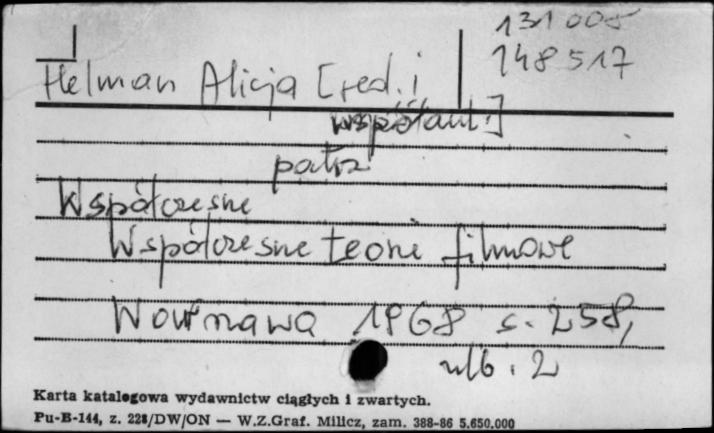 131 005
148 517
Helman Alicja [red. i
współaut.]
patrz
Współczesne
Współczesne teorie filmowe
Warszawa 1968 s. 258,
nlb. 2
Karta katalogowa wydawnictw ciągłych i zwartych.
Pu-B-144, z. 228/DW/ON — W.Z.Graf. Milicz, zam. 388-86 5.650.000